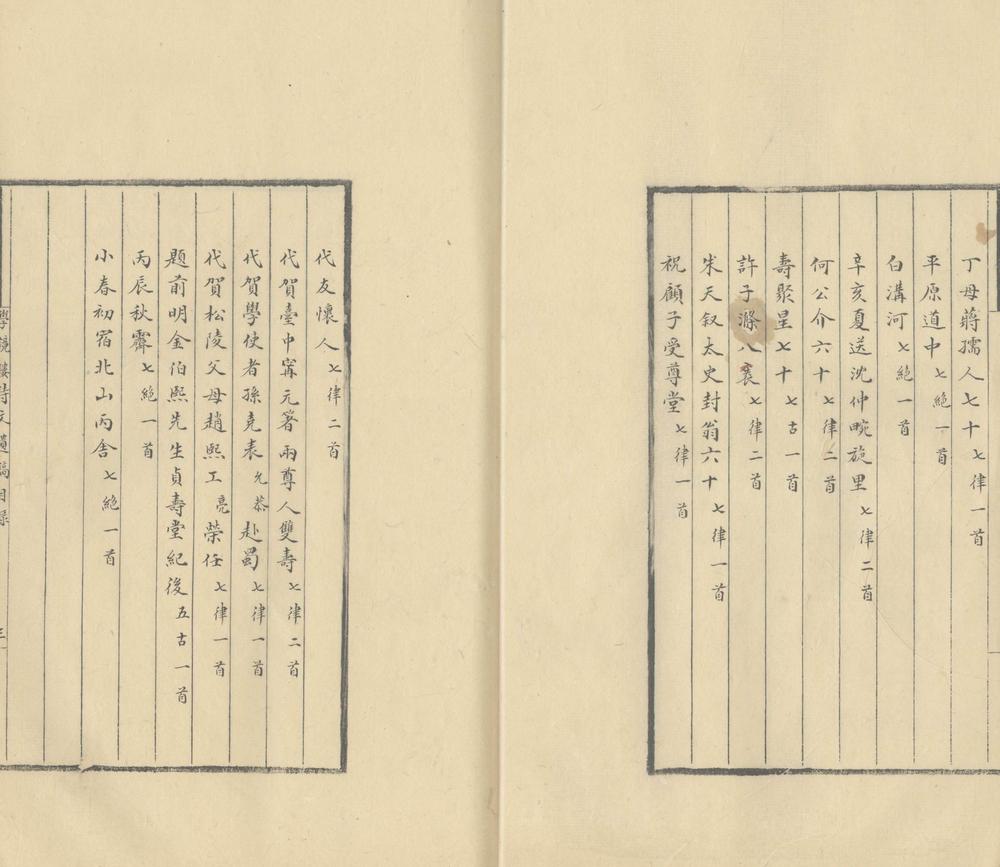 丁母蔣孺人七十七律一首
平原道中七絕一首
白溝河七絕一首
辛亥夏送沈仲畹旋里七律二首
何公介六十七律二首
壽聚星七十七古一首
許子滌八袠七律二首
朱天叙太史封翁六十七律一首
祝顧子受尊堂七律一首
代友懷人七律二首
代賀臺中甯元箸兩尊人雙壽七律二首
代賀學使者孫堯表允恭赴蜀七律一首
代賀松陵父母趙熙工亮榮任七律一首
題前明金伯熙先生貞壽堂紀後五古一首
丙辰秋霽七絕一首
小春初宿北山丙舍七絕一首
學鏡樓詩文遺稿目錄
三